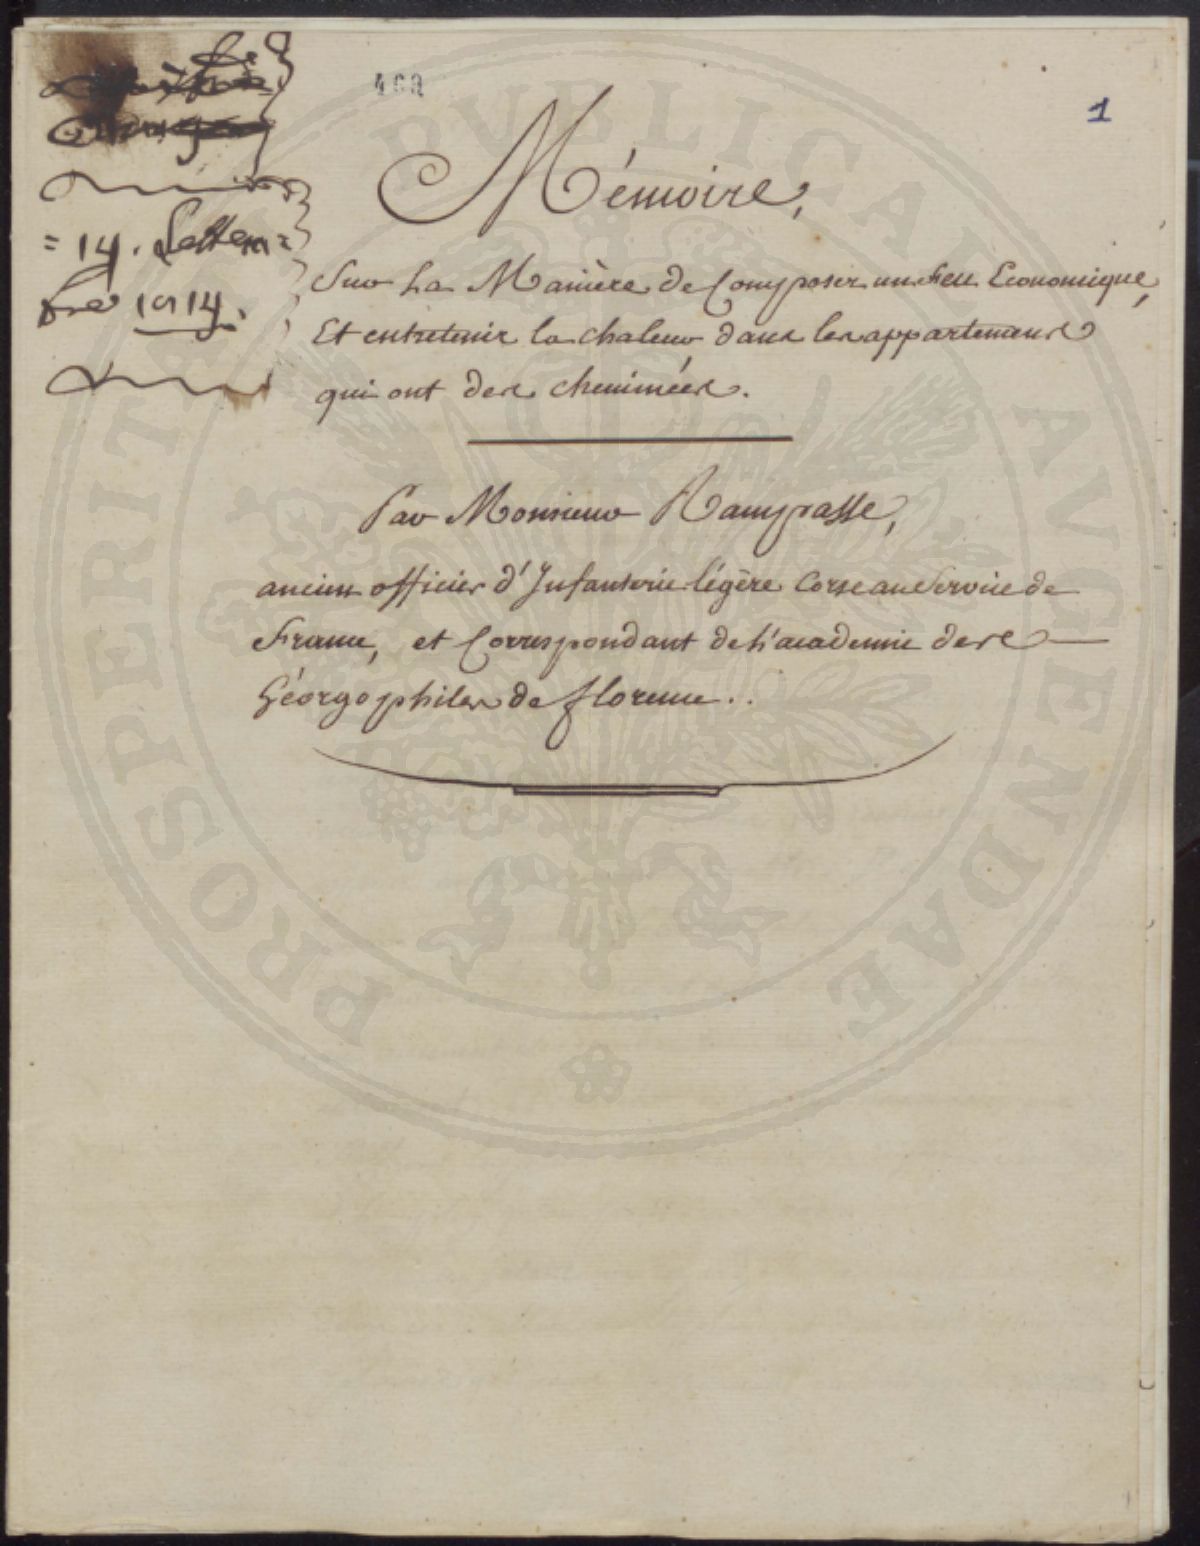 Le
= 14. Settem=
bre 1814.
1
Mémoire,
Sur La Manière de Composer un feu Economique,
Et entretenir la chaleur dans les appartemens
qui ont des cheminées.
Par Monsieur Rampasse,
ancien officier d'Infanterie légère Corse au Service de
France, et Correspondant de L'academie des
Géorgophiles de florence..
PROSPERITATI PVBLICAE AVGENDAE